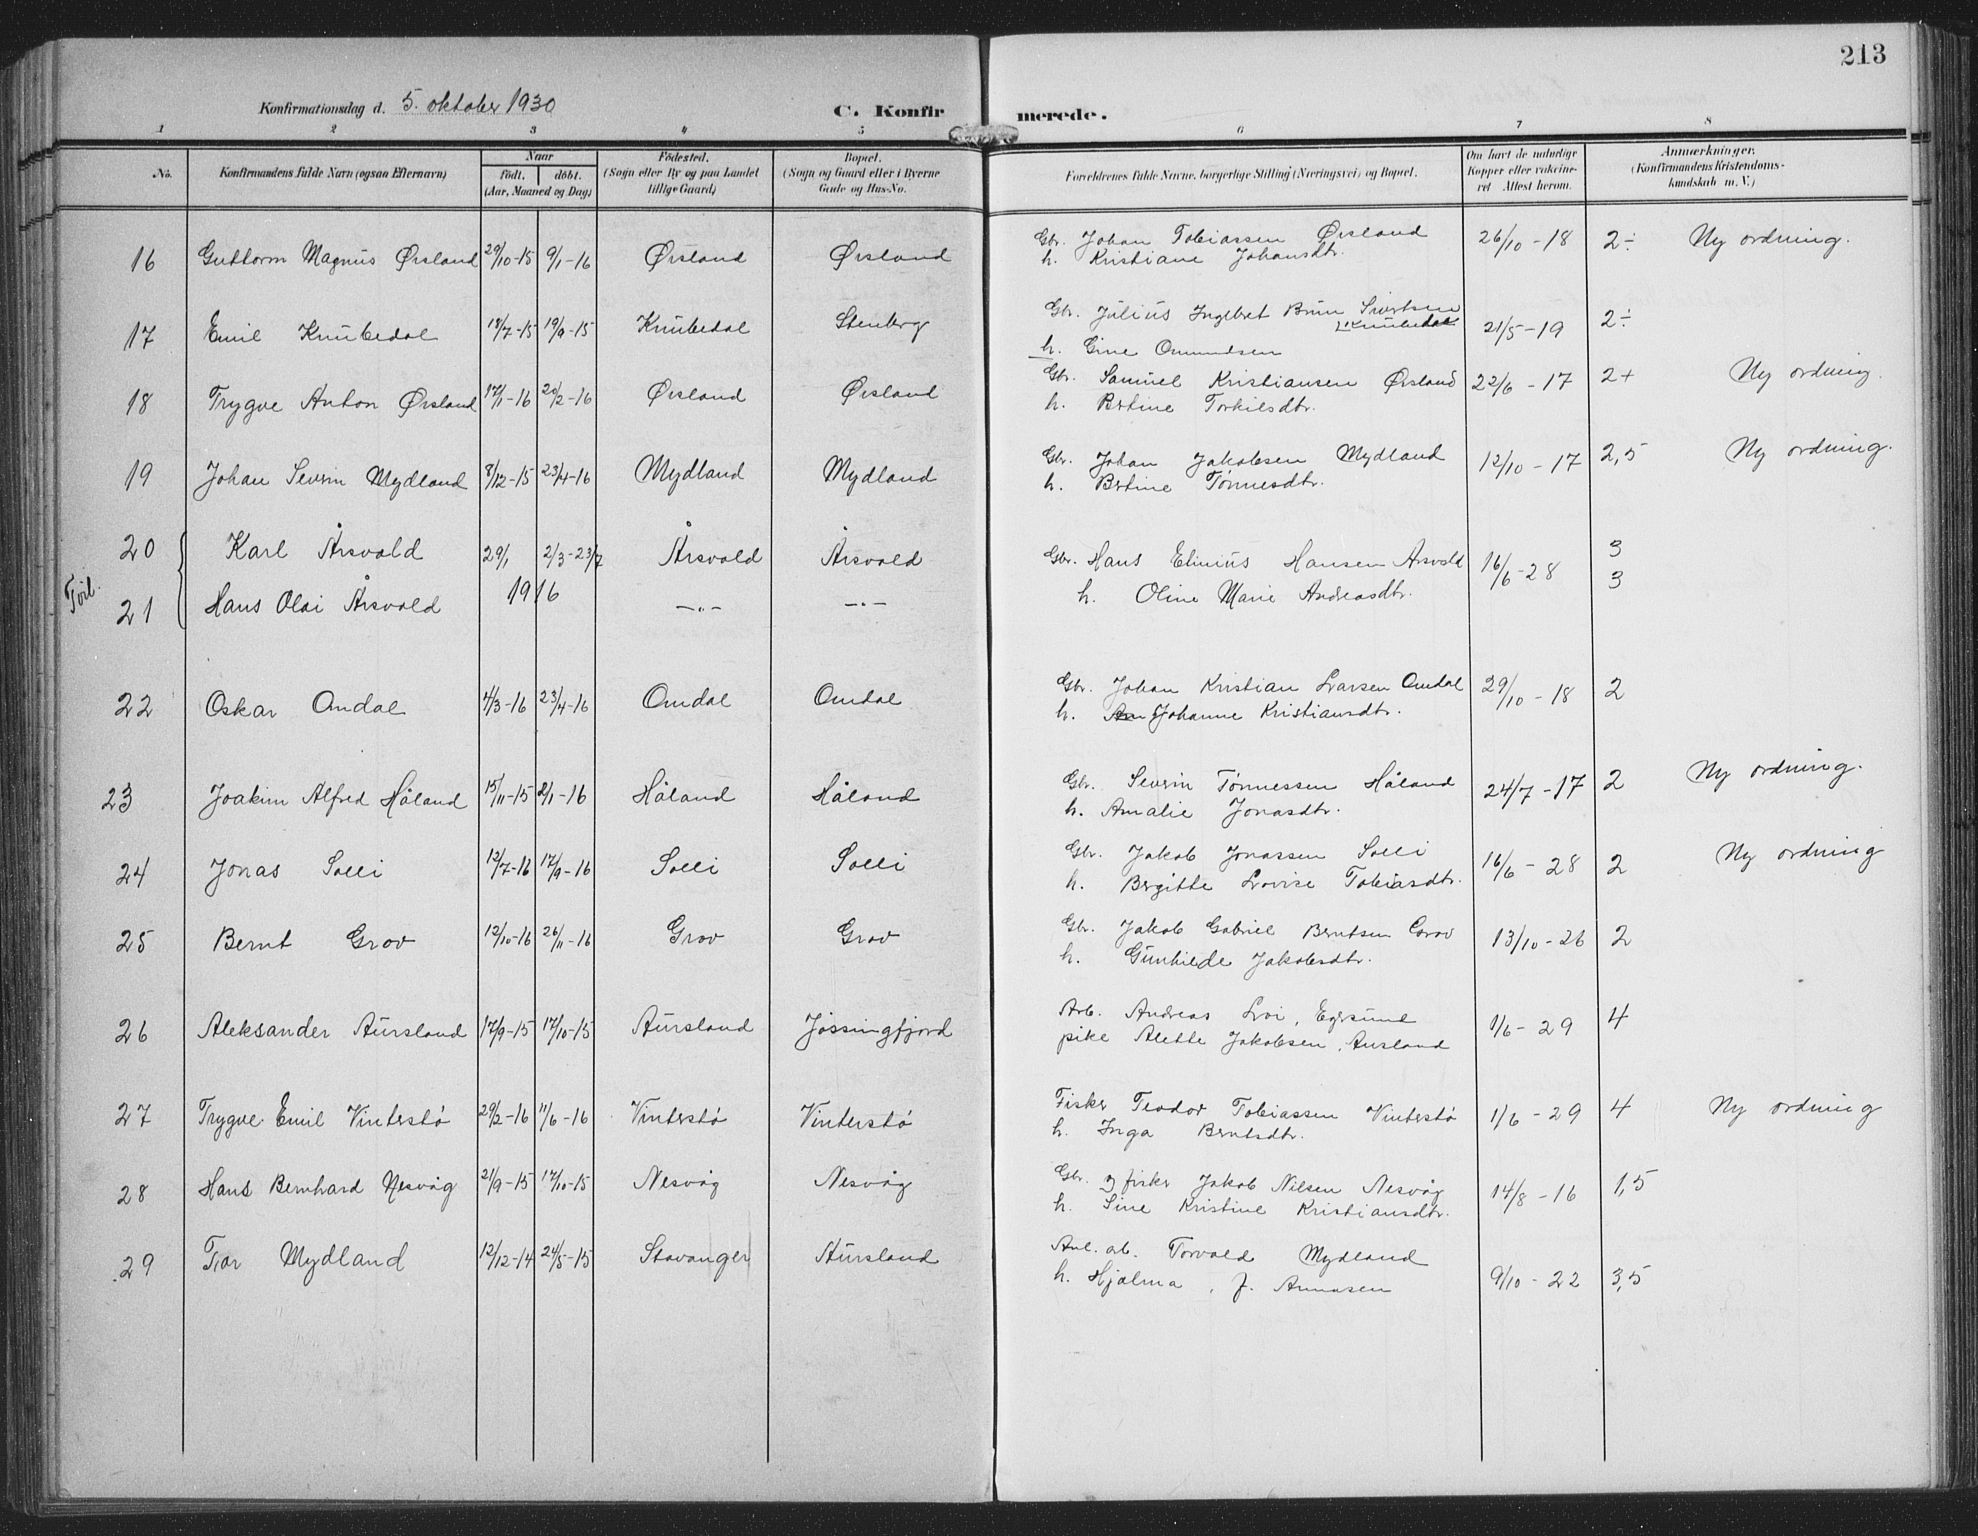 213
Konfirmationsdag d. 5. oktober 1930 C. Konfirmerede.
1 2 3 4 5 6 7 8
No. Konfirmandens fulde Navn (ogsaa Efternavn) Naar født. døbt. (Aar, Maaned og Dag) Fødested. (Sogn eller By og paa Landet tillige Gaard) Bopæl. (Sogn og Gaard eller i Byerne Gade og Hus-No. Forældrenes fulde Navne, borgerlige Stilling (Næringsvei) og Bopæl. Om havt de naturlige Kopper eller vakcineret Attest herom. Anmærkninger. (Konfirmandens Kristendomskundskab m. V.)
16 Guttorm Magnus Ørsland 29/10-15 9/1-16 Ørsland Ørsland Gbr. Johan Tobiassen Ørsland 26/10-18 2÷ Ny ordning.
h. Kristiane Johansdtr.
17 Emil Knubedal 18/7-15 19/9-15 Knubedal Stenberg Gbr. Julius Ingebret Brun Sivertsen 21/5-19 2÷
Knubedal
h. Gine Omundsen
18 Trygve Anton Ørsland 17/1-16 20/2-16 Ørsland Ørsland Gbr. Samuel Kristiansen Ørsland 22/6-17 2+ Ny ordning.
h. Bertine Torkilsdtr.
19 Johan Severin Mydland 8/12-15 23/4-16 Mydland Mydland Gbr. Johan Jakobsen Mydland 12/10-17 2,5 Ny ordning.
h. Bertine Tønnesdtr.
20 Karl Årsvold 29/1 2/3-23/7 Årsvold Årsvold Gbr. Hans Elinius Hansen Årsvold 16/6-28 3
Tvil. 21 Hans Olai Årsvold 1916 -"- -"- h. Oline Marie Andreasdtr. 3
22 Oskar Omdal 4/3-16 23/4-16 Omdal Omdal Gbr. Johan Kristian Larsen Omdal 29/10-18 2
h. Johanne Kristiansdtr.
23 Joakim Alfred Håland 15/11-15 2/1-16 Håland Håland Gbr. Severin Tønnessen Håland 24/7-17 2 Ny ordning.
h. Amalie Jonasdtr.
24 Jonas Solli 12/7-16 17/9-16 Solli Solli Gbr. Jakob Jonassen Solli 16/6-28 2 Ny ordning
h. Bergitte Lovise Tobiasdtr.
25 Bernt Grov 12/10-16 26/11-16 Grov Grov Gbr. Jakob Gabriel Berntsen Grov 13/10-26 2
h. Gunhilde Jakobsdtr.
26 Aleksander Aursland 17/9-15 17/10-15 Aursland Jøssingfjord Arb. Andreas Loi, Egersund 1/6-29 4
pike Alette Jakobsen, Aursland
27 Trygve Emil Vinterstø 29/2-16 11/6-16 Vinterstø Vinterstø Fisker Teodor Tobiassen Vinterstø 1/6-29 4 Ny ordning
h. Inga Berntsdtr.
28 Hans Bernhard Nesvåg 21/9-15 17/10-15 Nesvåg Nesvåg Gbr. og fisker Jakob Nilsen Nesvåg 14/8-16 1,5
h. Sine Kristine Kristiansdtr.
29 Tor Mydland 12/12-14 24/5-15 Stavanger Aursland Anl. ab. Torvald Mydland 9/10-22 3,5
h. Hjalma, f. Annasen